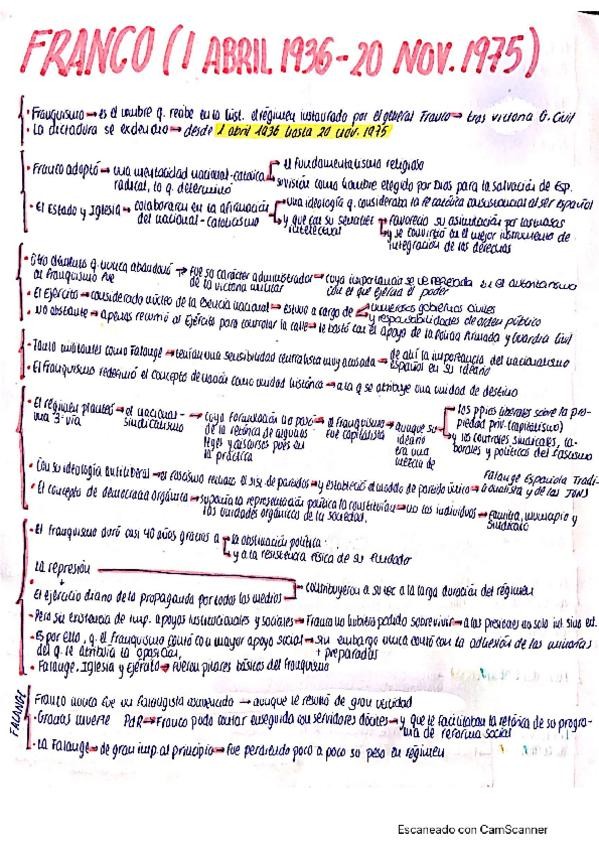 FRANCO (1 ABRIL 1936 - 20 NOV. 1975)
· Franquismo → es el nombre q. recibe en la hist. el régimen instaurado por el general Franco → tras victoria G. Civil
· La dictadura se extendió → desde 1 abril 1936 hasta 20 nov. 1975
· Franco adoptó → una mentalidad nacional-católica radical, lo q. determinó
el fundamentalismo religioso
su visión como hombre elegido por Dios para la salvación de Esp.
· El Estado y Iglesia → colaboraron en la afirmación del nacional-catolicismo
una ideología q. consideraba la fe católica consustancial al ser español
y que con su sencillez intelectual
favoreció su asimilación por las masas
y se convirtió en el mejor instrumento de integración de las derechas
· Otro distintivo q. nunca abandonó al franquismo fue → fue su carácter administrador de la victoria militar → cuya importancia se ve reflejada en el autoritarismo con el que ejercía el poder
· El Ejército → considerado núcleo de la esencia nacional → estuvo a cargo de
numerosos gobiernos civiles
y responsabilidades de orden público
· No obstante → apenas recurrió al Ejército para controlar la calle → le bastó con el apoyo de la Policía Armada y Guardia Civil
· Tanto militantes como Falange → tenían una sensibilidad centralista muy acusada → de ahí la importancia del nacionalismo español en su ideario
· El franquismo redefinió el concepto de nación como unidad histórica → a la q se atribuye una unidad de destino
· El régimen planteó una 3ª vía → el nacional-sindicalismo → cuya formulación no pasó de la retórica de algunas leyes y discursos pues en la práctica → el franquismo fue capitalista → aunque su ideario era una mezcla de
los ppios liberales sobre la propiedad priv. (capitalismo)
y los controles sindicales, laborales y políticos del fascismo
· Con su ideología antiliberal → el fascismo rechazó el sist. de partidos → y estableció el modelo de partido único → Falange Española Tradicionalista y de las JONS
· El concepto de democracia orgánica → suponía la representación política la constituían las unidades orgánicas de la sociedad → no los individuos → familia, municipio y sindicato
· El franquismo duró casi 40 años gracias a
la obstinación política
y a la resistencia física de su fundador
· La represión
+
· El ejercicio diario de la propaganda por todos los medios
→ contribuyeron a su vez a la larga duración del régimen
· Pero sin existencia de imp. apoyos institucionales y sociales → Franco no hubiera podido sobrevivir → a las presiones no solo int. sino ext.
· Es por ello, q. el franquismo contó con mayor apoyo social del q. le atribuía la oposición, → Sin embargo nunca contó con la adhesión de las minorías + preparadas
· Falange, Iglesia y Ejército → fueron pilares básicos del franquismo
FALANGE
· Franco nunca fue un falangista convencido → aunque le resultó de gran utilidad
· Gracias muerte PdR → Franco pudo contar enseguida con servidores dóciles → y que le facilitaban la retórica de su programa de reforma social
· La Falange → de gran imp. al principio → fue perdiendo poco a poco su peso en régimen
Escaneado con CamScanner